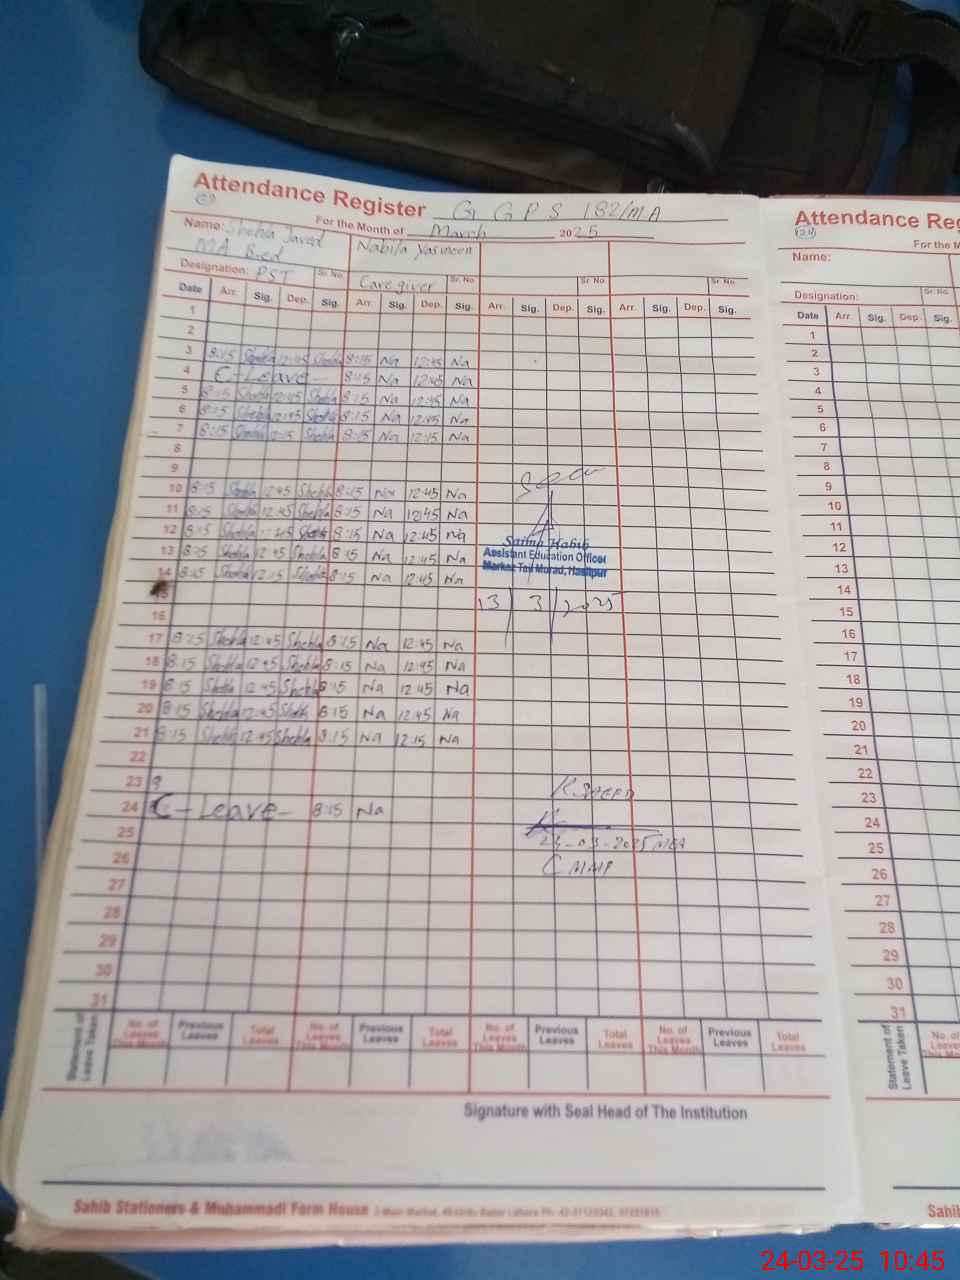 Attendance Register G GPS 182/MA
For the Month of March 2025
Name: Shehla Javed Nabila Yasmeen
MA B.ed
Designation: PST Sr. No. Care giver Sr. No. Sr. No. Sr. No.
Date Arr. Sig. Dep. Sig. Arr. Sig. Dep. Sig. Arr. Sig. Dep. Sig. Arr. Sig. Dep. Sig.
1
2
3 8:15 Shehla 12:45 Shehla 8:15 Na 12:45 Na
4 C-Leave- 8:15 Na 12:45 Na
5 8:15 Shehla 12:45 Shehla 8:15 Na 12:45 Na
6 8:15 Shehla 12:45 Shehla 8:15 Na 12:45 Na
7 8:15 Shehla 12:15 Shehla 8:15 Na 12:15 Na
8
9
10 8:15 Shehla 12:45 Shehla 8:15 Na 12:45 Na
11 8:15 Shehla 12:45 Shehla 8:15 Na 12:45 Na
12 8:15 Shehla 12:45 Shehla 8:15 Na 12:45 Na
13 8:15 Shehla 12:45 Shehla 8:15 Na 12:45 Na
14 8:15 Shehla 12:15 Shehla 8:15 Na 12:45 Na
15
16
17 8:15 Shehla 12:45 Shehla 8:15 Na 12:45 Na
18 8:15 Shehla 12:45 Shehla 8:15 Na 12:45 Na
19 8:15 Shehla 12:45 Shehla 8:15 Na 12:45 Na
20 8:15 Shehla 12:45 Shehla 8:15 Na 12:45 Na
21 8:15 Shehla 12:45 Shehla 8:15 Na 12:15 Na
22
23
24 C-Leave- 8:15 Na
25
26
27
28
29
30
31
Seen
Saima Habib
Assistant Education Officer
Markaz Taji Murad, Hasilpur
13/3/2025
24-03-2025 MEA
Statement of Leave Taken
No. of Leaves This Month Previous Leaves Total Leaves No. of Leaves This Month Previous Leaves Total Leaves No. of Leaves This Month Previous Leaves Total Leaves No. of Leaves This Month Previous Leaves Total Leaves
Signature with Seal Head of The Institution
Sahib Stationers & Muhammadi Form House
Attendance Reg
(24)
For the M
Name:
Designation: Sr. No.
Date Arr. Sig. Dep. Sig.
1
2
3
4
5
6
7
8
9
10
11
12
13
14
15
16
17
18
19
20
21
22
23
24
25
26
27
28
29
30
31
Statement of Leave Taken
No. of Leaves This Month
Sahib
24-03-25 10:45